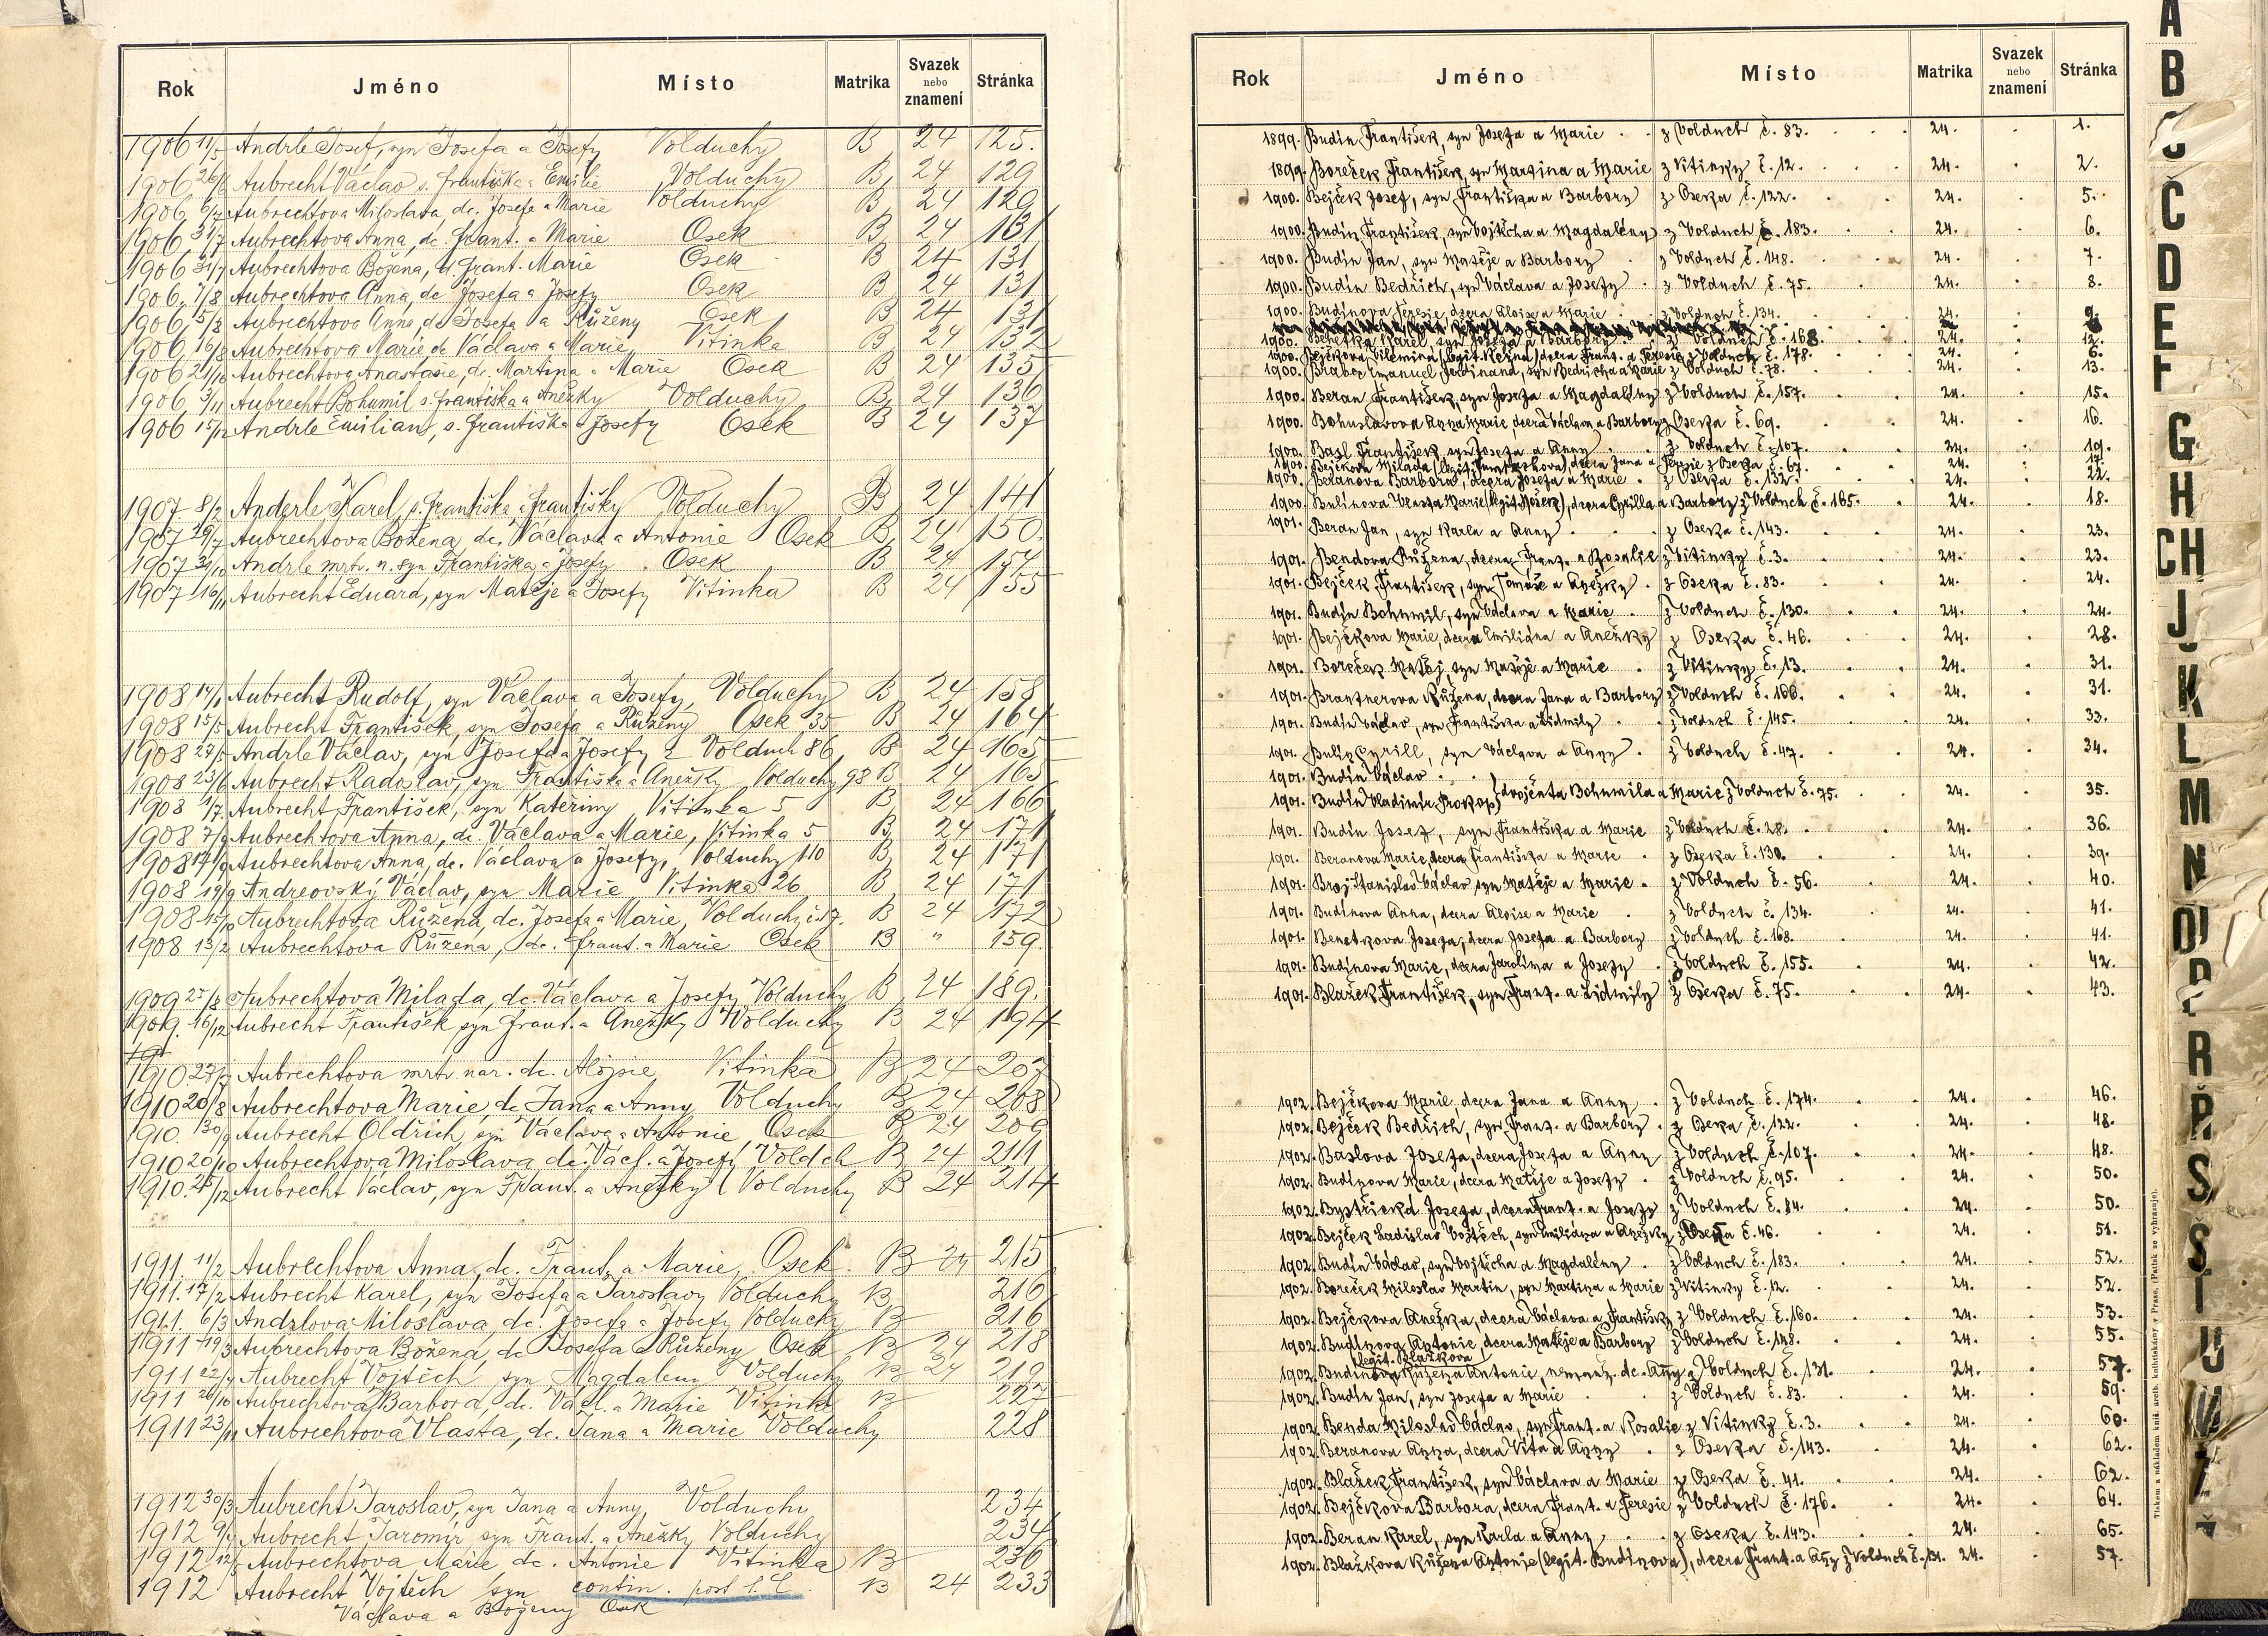 Rok Jméno Místo Matrika Svazek nebo znamení Stránka
1906 11/5 Andrle Josef, syn Josefa a Josefy Volduchy B 24 125.
1906 26/6 Aubrecht Václav s. Františka a Emilie Volduchy B 24 129
1906 6/7 Aubrechtova Miloslava, dc. Josefa a Marie Volduchy B 24 129
1906 31/7 Aubrechtova Anna, dc. Frant. a Marie Osek B 24 131
1906 31/7 Aubrechtova Božena, d. Frant. Marie Osek B 24 131
1906 7/8 Aubrechtova Anna, dc Josefa a Josefy Osek B 24 131
1906 5/8 Aubrechtova Anna, dc Josefa a Růženy Osek B 24 131
1906 16/8 Aubrechtova Marie dc Václava a Marie Vitinka B 24 132
1906 21/10 Aubrechtova Anastasie, dc. Martina a Marie Osek B 24 135
1906 3/11 Aubrecht Bohumil s. Františka a Anežky Volduchy B 24 136
1906 15/12 Andrle Emilian, s. Františka a Josefy Osek B 24 137
1907 8/2 Anderle Karel, s. Františka a Františky Volduchy B 24 141
1907 19/7 Aubrechtova Božena, dc. Václava a Antonie Osek B 24 150.
1907 Andrle mrtv. n. syn Františka a Josefy Osek B 24 154
1907 16/11 Aubrecht Eduard, syn Matěje a Josefy Vitinka B 24 155
1908 14/1 Aubrecht Rudolf, syn Václava a Josefy, Volduchy B 24 158
1908 15/5 Aubrecht František, syn Josefa a Růženy Osek 35 B 24 164
1908 27/5 Andrle Václav, syn Josefa a Josefy z Volduch 86 B 24 165
1908 23/6 Aubrecht Radoslav, syn Františka a Anežky Volduchy 98 B 24 165
1908 1/7 Aubrecht František, syn Kateřiny Vitinka 5 B 24 166
1908 7/9 Aubrechtova Anna, dc. Václava a Marie, Vitinka 5 B 24 171
1908 14/9 Aubrechtova Anna, dc. Václava a Josefy, Volduchy 110 B 24 171
1908 19/9 Andreovský Václav, syn Marie Vitinka 26 B 24 171
1908 15/10 Aubrechtova Růžena, dc. Josefa a Marie, Volduchy B 24 172
1908 13/2 Aubrechtova Růžena, dc. Frant. a Marie Osek B " 159.
1909 27/8 Aubrechtova Milada, dc. Václava a Josefy Volduchy B 24 189.
1909. 16/12 Aubrecht František syn Frant. a Anežky Volduchy B 24 194
191
1910 27/7 Aubrechtova mrtv. nar. dc. Aloisie Vitinka B 24 207
1910 20/8 Aubrechtova Marie, dc Jana a Anny Volduchy B 24 208
1910. 30/9 Aubrecht Oldřich, syn Václava a Antonie Osek B 24 209
1910 20/10 Aubrechtova Miloslava dc. Václ. a Josefy Voldch B 24 211
1910. 25/12 Aubrecht Václav, syn Frant. a Anežky Volduchy B 24 214
1911. 11/2 Aubrechtova Anna, dc. Frant. a Marie, Osek. B 24 215
1911. 17/2 Aubrecht Karel, syn Josefa a Jaroslavy Volduchy B 216
1911. 6/3 Andrlova Miloslava, dc. Josefa a Josefy Volduchy B 216
1911 19/3 Aubrechtova Božena, dc Josefa a Růženy Osek B 24 218
1911 22/4 Aubrecht Vojtěch syn Magdaleny Volduchy B 24 219
1911 26/10 Aubrechtova Barbora, dc. Václ. a Marie Vitinka B 227
1911 23/11 Aubrechtova Vlasta, dc. Jana a Marie Volduchy 228
1912 30/3 Aubrecht Jaroslav, syn Jana a Anny Volduchy 234
1912 9/4 Aubrecht Jaromír syn Frant. a Anežky Volduchy 234
1912 12/5 Aubrechtova Marie dc. Antonie Vitinka B 236
1912 Aubrecht Vojtěch syn contin. post l. Č. B 24 233
Václava a Boženy Osek
Rok Jméno Místo Matrika Svazek nebo znamení Stránka
1899. Budín František, syn Josefa a Marie z Volduch č. 83. 24. 1.
1899. Boreček František, syn Martina a Marie z Vitinky č. 12. 24. 2.
1900. Bejček Josef, syn Františka a Barbory z Oseka č. 122. 24. 5.
1900. Budín František, syn Vojtěcha a Magdalény z Volduch č. 183. 24. 6.
1900. Budín Jan, syn Matěje a Barbory z Volduch č. 148. 24. 7.
1900. Budín Bedřich, syn Václava a Josefy z Volduch č. 75. 24. 8.
1900. Budínova Teresie, dcera Aloise a Marie z Volduch č. 134. 24. 9.
1900. Benetka Karel, syn Josefa a Barbory z Volduch č. 168 24. 12.
1900. Bejčkova Vilemína (legit. ), dcera Frant. a Teresie z Volduch č. 178. 24. 6.
1900. Brabec Emanuel Ferdinand, syn Bedřicha a Marie z Volduch č. 78. 24. 13.
1900. Beran František, syn Josefa a Magdalény z Volduch č. 157. 24. 15.
1900. Bohuslavova Anna Marie, dcera Václava a Barbory z Oseka č. 69. 24. 16.
1900. Basl František, syn Josefa a Anny z Volduch č. 107. 24. 19.
1900. Bejčkova Milada (legit. ), dcera Jana a Teresie z Oseka č. 67. 24. 17.
1900. Beranova Barbora, dcera Josefa a Marie z Oseka č. 132. 24. 22.
1900. Bulínova Vlasta Marie (legit. ), dcera Cyrilla a Barbory z Volduch č. 165. 24. 18.
1901. Beran Jan, syn Karla a Anny z Oseka č. 143. 24. 23.
1901. Bendova Růžena, dcera Frant. a Rosalie z Vitinky č. 3. 24. 23.
1901. Bejček František, syn Tomáše a Anežky z Oseka č. 83. 24. 24.
1901. Budín Bohumil, syn Václava a Marie z Volduch č. 130. 24. 24.
1901. Bejčkova Marie, dcera Emiliána a Anežky z Oseka č. 46. 24. 28.
1901. Boreček Matěj, syn Matěje a Marie z Vitinky č. 13. 24. 31.
1901. Brantnerova Růžena, dcera Jana a Barbory z Volduch č. 166. 24. 31.
1901. Budín Václav, syn Františka a Lidmily z Volduch č. 145. 24. 33.
1901. Bulín Cyrill, syn Václava a Anny z Volduch č. 47. 24. 34.
1901. Budín Václav
1901. Budín Vladimír Prokop } dvojčata Bohumila a Marie z Volduch č. 75. 24. 35.
1901. Budín Josef, syn Františka a Marie z Volduch č. 28. 24. 36.
1901. Beranova Marie, dcera Františka a Marie z Oseka č. 130. 24. 39.
1901. Broj Stanislav Václav syn Matěje a Marie z Volduch č. 56. 24. 40.
1901. Budínova Anna, dcera Aloise a Marie z Volduch č. 134. 24. 41.
1901. Benetkova Josefa, dcera Josefa a Barbory z Volduch č. 168. 24. 41.
1901. Budínova Marie, dcera Jarolíma a Josefy z Volduch č. 155. 24. 42.
1901. Blažek František, syn Frant. a Lidmily z Oseka č. 75. 24. 43.
1902. Bejčkova Marie, dcera Jana a Anny z Volduch č. 174. 24. 46.
1902. Bejček Bedřich, syn Frant. a Barbory z Oseka č. 122. 24. 48.
1902. Baslova Josefa, dcera Josefa a Anny z Volduch č. 107. 24. 48.
1902. Budínova Marie, dcera Matěje a Josefy z Volduch č. 95. 24. 50.
1902. Bystřická Josefa, dcera Frant. a Josefy z Volduch č. 84. 24. 50.
1902. Bejček Ladislav Vojtěch, syn Emiliána a Anežky z Oseka č. 46. 24. 51.
1902. Budín Václav, syn Vojtěcha a Magdalény z Volduch č. 183. 24. 52.
1902. Boreček Miloslav Martin, syn Martina a Marie z Vitinky č. 12. 24. 52.
1902. Bejčkova Anežka, dcera Václava a Františky z Volduch č. 160. 24. 53.
1902. Budínova Antonie, dcera Matěje a Barbory z Volduch č. 148. 24. 55.
legit. Blažkova
1902. Budínova Růžena Antonie, nemanž. dc. Anny z Volduch č. 131. 24. 57.
1902. Budín Jan, syn Josefa a Marie z Volduch č. 83. 24. 59.
1902. Benda Miloslav Václav, syn Frant. a Rosalie z Vitinky č. 3. 24. 60.
1902. Beranova Anna, dcera Víta a Anny z Oseka č. 143. 24. 62.
1902. Blažek František, syn Václava a Marie z Oseka č. 41. 24. 62.
1902. Bejčkova Barbora, dcera Frant. a Teresie z Volduch č. 176. 24. 64.
1902. Beran Karel, syn Karla a Anny z Oseka č. 143. 24. 65.
1902. Blažkova Růžena Antonie (legit. Budínova), dcera Frant. a Anny z Volduch č. 131. 24. 57.
Tiskem a nákladem kníž. arcib. knihtiskárny v Praze. (Patisk se vyhrazuje).
A
B
C
Č
D
E
F
G
H
CH
J
K
L
M
N
O
P
R
Ř
S
Š
T
U
V
Z
Ž